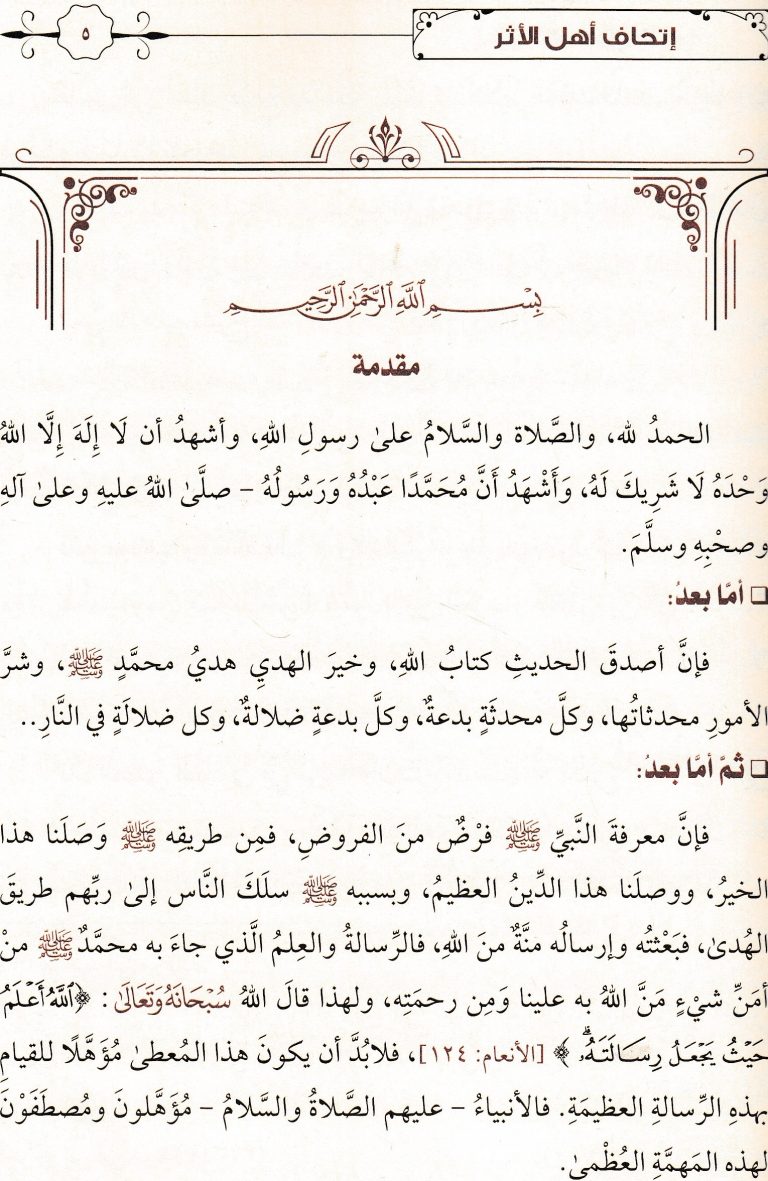 إتحاف أهل الأثر
٥
بِسْمِ ٱللَّهِ ٱلرَّحْمَٰنِ ٱلرَّحِيمِ
مقدمة
الحمدُ لله، والصَّلاة والسَّلامُ علىٰ رسولِ اللهِ، وأشهدُ أن لَا إِلَهَ إِلَّا اللهُ
وَحْدَهُ لَا شَرِيكَ لَهُ، وَأَشْهَدُ أَنَّ مُحَمَّدًا عَبْدُهُ وَرَسُولُهُ – صلَّىٰ اللهُ عليهِ وعلىٰ آلهِ
وصحْبِهِ وسلَّمَ.
❑ أمَّا بعدُ:
فإنَّ أصدقَ الحديثِ كتابُ اللهِ، وخيرَ الهديِ هديُ محمَّدٍ ﷺ، وشرَّ
الأمورِ محدثاتُها، وكلَّ محدثَةٍ بدعةٌ، وكلَّ بدعةٍ ضلالةٌ، وكل ضلالَةٍ في النَّارِ..
❑ ثمَّ أمَّا بعدُ:
فإنَّ معرفةَ النَّبيِّ ﷺ فرْضٌ منَ الفروضِ، فمِن طريقِه ﷺ وَصَلَنا هذا
الخيرُ، ووصلَنا هذا الدِّينُ العظيمُ، وبسببه ﷺ سلَكَ النَّاس إلىٰ ربِّهم طريقَ
الهُدىٰ، فبَعْثتُه وإرسالُه منَّةٌ منَ اللهِ، فالرِّسالةُ والعِلمُ الَّذي جاءَ به محمَّدٌ ﷺ منْ
أمَنِّ شيْءٍ مَنَّ اللهُ به علينا وَمِن رحمَتِه، ولهذا قالَ اللهُ سُبْحَانَهُ وَتَعَالَىٰ: ﴿ٱللَّهُ أَعْلَمُ
حَيْثُ يَجْعَلُ رِسَالَتَهُۥ﴾ [الأنعام: ١٢٤]، فلابُدَّ أن يكونَ هذا المُعطىٰ مُؤَهَّلًا للقيامِ
بهذهِ الرِّسالةِ العظيمَةِ. فالأنبياءُ – عليهم الصَّلاةُ والسَّلامُ – مُؤَهَّلونَ ومُصطَفَوْنَ
لهذه المَهمَّةِ العُظْمىٰ.